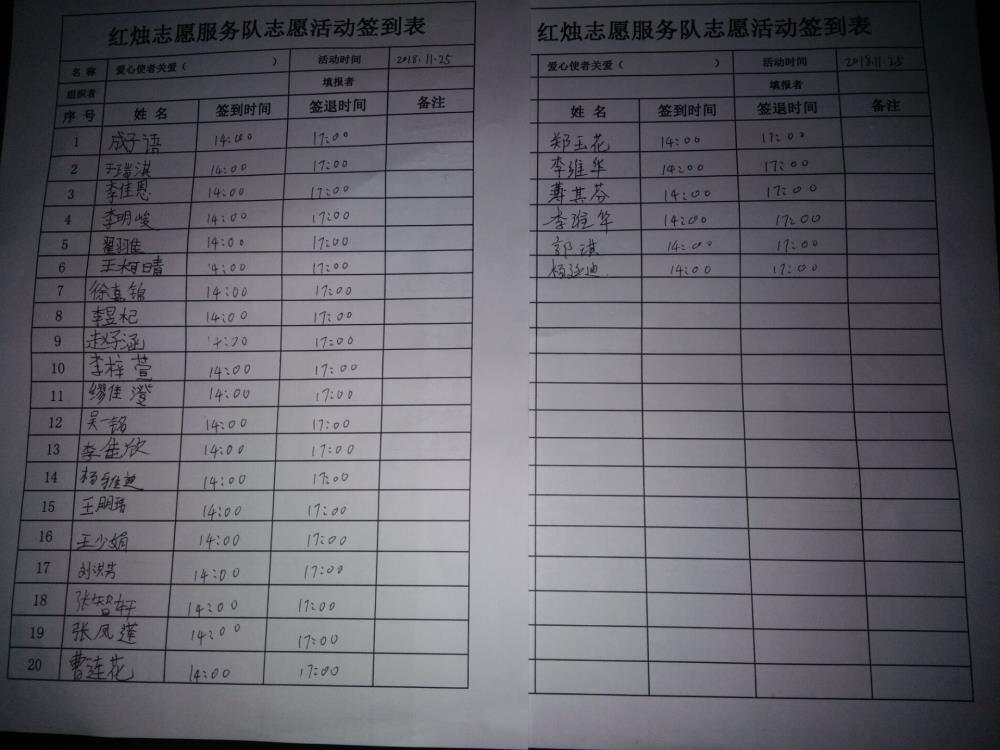 红烛志愿服务队志愿活动签到表
名 称 爱心使者关爱（ ） 活动时间 2018.11.25
组织者 填报者
序 号 姓 名 签到时间 签退时间 备注
1 成子语 14:00 17:00
2 于瑞淇 14:00 17:00
3 李佳恩 14:00 17:00
4 李明峻 14:00 17:00
5 翟羽佳 14:00 17:00
6 王柯晴 14:00 17:00
7 徐嘉锦 14:00 17:00
8 李昱杞 14:00 17:00
9 赵子涵 14:00 17:00
10 李梓萱 14:00 17:00
11 缪佳澄 14:00 17:00
12 吴一铭 14:00 17:00
13 李佳欣 14:00 17:00
14 杨 14:00 17:00
15 王朋玮 14:00 17:00
16 王少娟 14:00 17:00
17 刘洪芳 14:00 17:00
18 张智轩 14:00 17:00
19 张凤莲 14:00 17:00
20 曹连花 14:00 17:00
红烛志愿服务队志愿活动签到表
爱心使者关爱（ ） 活动时间 2018.11.25
填报者
姓 名 签到时间 签退时间 备注
郑玉花 14:00 17:00
李维华 14:00 17:00
其芬 14:00 17:00
李 华 14:00 17:00
郭琪 14:00 17:00
杨延迪 14:00 17:00